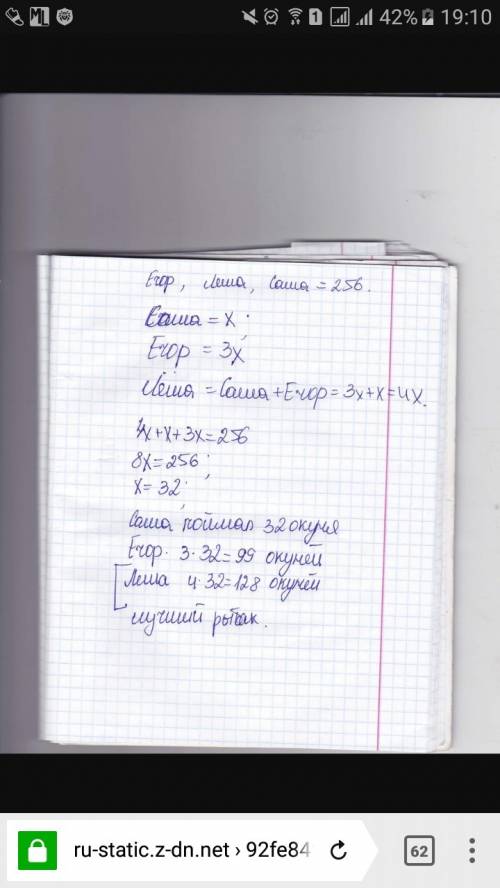 42% 19:10
Егор, Леша, Саша = 256.
Саша = x
Егор = 3x
Лёша = Саша + Егор = 3x+x=4x.
4x+x+3x=256
8x=256
x=32
Саша поймал 32 окуня
Егор 3·32=99 окуней
Леша 4·32=128 окуней
лучший рыбак.
ru-static.z-dn.net › 92fe84
62